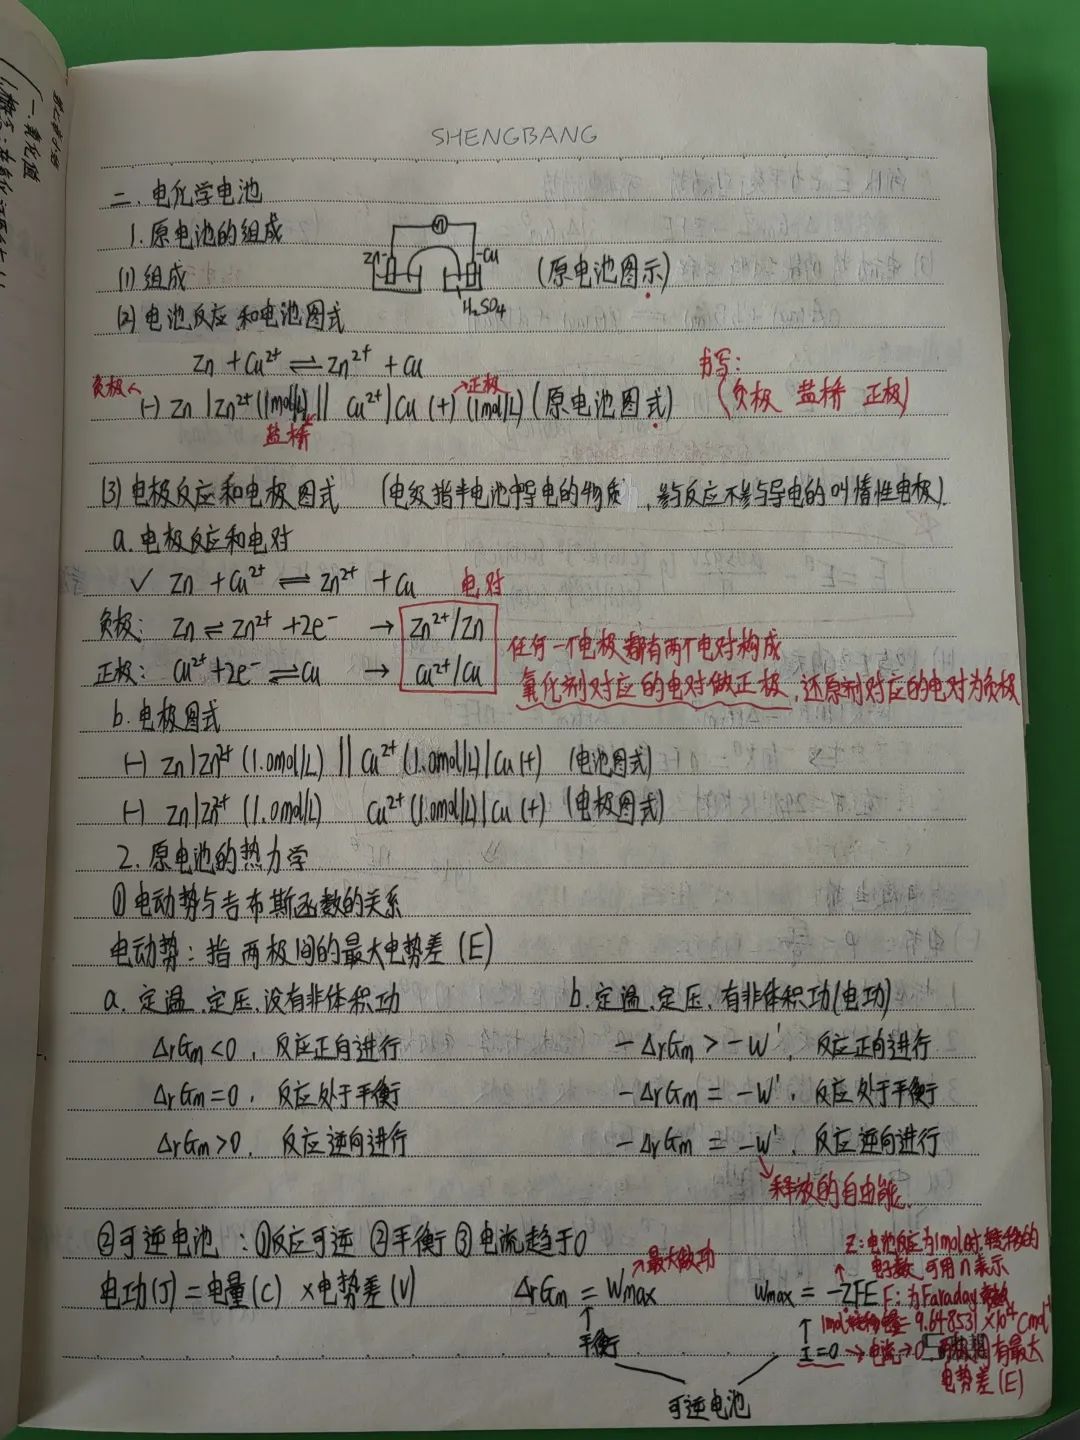 SHENGBANG
二.电化学电池
1.原电池的组成
(1)组成
Zn
Cu
H₂SO₄
(原电池图示)
(2)电池反应和电池图式
Zn + Cu²⁺ ⇌ Zn²⁺ + Cu
书写:
(负极 盐桥 正极)
负极
正极
(-) Zn | Zn²⁺ (1mol/L) || Cu²⁺ | Cu (+) (1mol/L) (原电池图式)
盐桥
(3)电极反应和电极图式 (电级指半电池中导电的物质,参与反应不参与导电的叫惰性电极).
a.电极反应和电对
✓ Zn + Cu²⁺ ⇌ Zn²⁺ + Cu 电对
负极: Zn ⇌ Zn²⁺ + 2e⁻ → Zn²⁺/Zn
任何一个电极都有两个电对构成
正极: Cu²⁺ + 2e⁻ ⇌ Cu → Cu²⁺/Cu
氧化剂对应的电对做正极,还原剂对应的电对为负极
b.电极图式
(-) Zn | Zn²⁺ (1.0mol/L) || Cu²⁺ (1.0mol/L) | Cu (+) (电池图式)
(-) Zn | Zn²⁺ (1.0mol/L) Cu²⁺ (1.0mol/L) | Cu (+) (电极图式)
2.原电池的热力学
①电动势与吉布斯函数的关系
电动势:指两极间的最大电势差(E)
a.定温.定压.没有非体积功
ΔrGm<0, 反应正向进行
ΔrGm=0, 反应处于平衡
ΔrGm>0, 反应逆向进行
b.定温.定压.有非体积功(电功)
-ΔrGm > -W', 反应正向进行
-ΔrGm = -W', 反应处于平衡
-ΔrGm = -W', 反应逆向进行
释放的自由能.
②可逆电池:①反应可逆 ②平衡 ③电流趋于0
电功(J)=电量(C)×电势差(V)
ΔrGm = Wmax
最大做功
平衡
Wmax = -ZFE
Z:电池反应为1mol时转移的
电子数,可用n表示
F:为Faraday常数
9.648531×10⁴Cmol⁻¹
I=0 → 电流→0
有最大
电势差(E)
可逆电池
一.氧化值